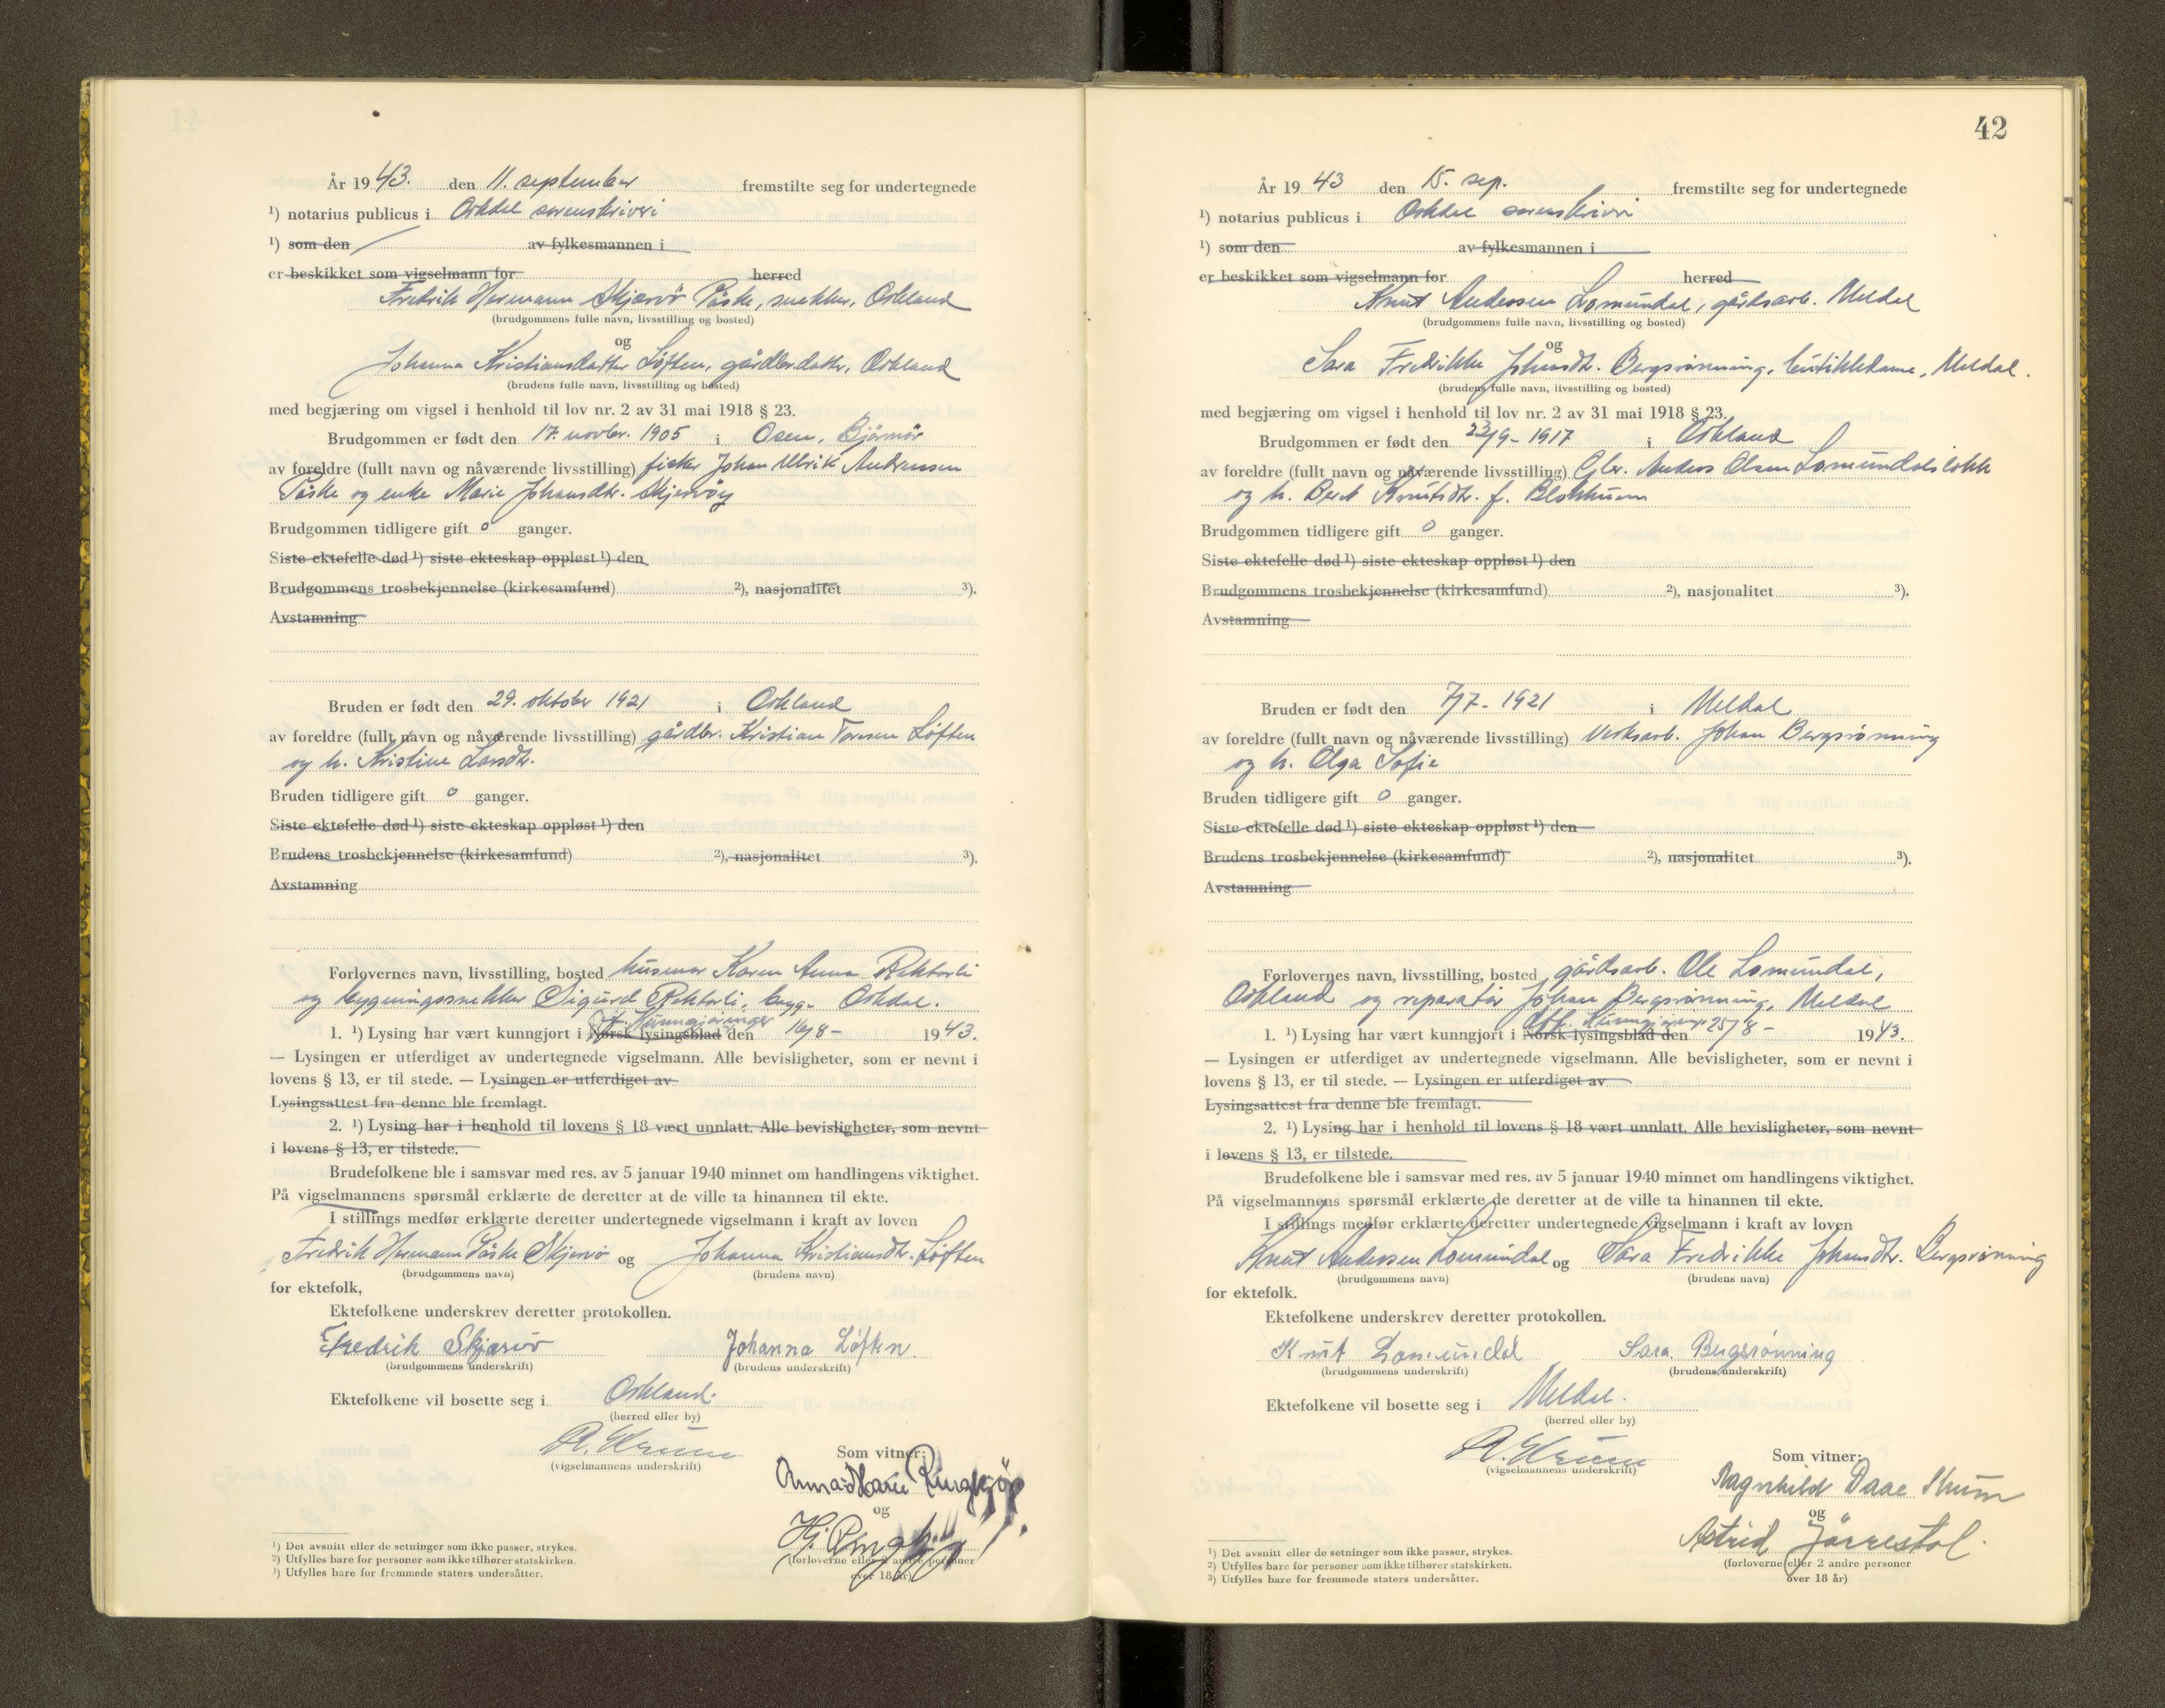 År 1943. den 11. september fremstilte seg for undertegnede
¹) notarius publicus i Orkdal sorenskriveri
¹) som den av fylkesmannen i
er beskikket som vigselmann for herred
Fredrik Hermann Skjærvör Påske, snekker, Orkland
(brudgommens fulle navn, livsstilling og bosted)
og
Johanna Kristiansdatter Løften, gårdbr.datter, Orkland
(brudens fulle navn, livsstilling og bosted)
med begjæring om vigsel i henhold til lov nr. 2 av 31 mai 1918 § 23.
Brudgommen er født den 17. novbr. 1905 i Osen, Bjørnör
av foreldre (fullt navn og nåværende livsstilling) fisker Johan Ulrik Andreassen
Påske og enke Marie Johansdtr. Skjervöy
Brudgommen tidligere gift 0 ganger.
Siste ektefelle død ¹) siste ekteskap oppløst ¹) den
Brudgommens trosbekjennelse (kirkesamfund) ²), nasjonalitet ³).
Avstamning
Bruden er født den 29. oktober 1921 i Orkland
av foreldre (fullt navn og nåværende livsstilling) gårdbr. Kristian Toresen Løften
og h. Kristine Larsdtr.
Bruden tidligere gift 0 ganger.
Siste ektefelle død ¹) siste ekteskap oppløst ¹) den
Brudens trosbekjennelse (kirkesamfund) ²), nasjonalitet ³).
Avstamning
Forlovernes navn, livsstilling, bosted husmor Karen Anna
og bygningssnekker Sigurd begge Orkdal.
Off. Kunngjøringer
1. ¹) Lysing har vært kunngjort i Norsk lysingsblad den 16/8 - 1943.
— Lysingen er utferdiget av undertegnede vigselmann. Alle bevisligheter, som er nevnt i
lovens § 13, er til stede. — Lysingen er utferdiget av
Lysingsattest fra denne ble fremlagt.
2. ¹) Lysing har i henhold til lovens § 18 vært unnlatt. Alle bevisligheter, som nevnt
i lovens § 13, er tilstede.
Brudefolkene ble i samsvar med res. av 5 januar 1940 minnet om handlingens viktighet.
På vigselmannens spørsmål erklærte de deretter at de ville ta hinannen til ekte.
I stillings medfør erklærte deretter undertegnede vigselmann i kraft av loven
Fredrik Hermann Påske Skjervö og Johanna Kristiansdtr. Løften
(brudgommens navn) (brudens navn)
for ektefolk,
Ektefolkene underskrev deretter protokollen.
Fredrik Skjærvör Johanna Løften.
(brudgommens underskrift) (brudens underskrift)
Ektefolkene vil bosette seg i Orkland.
(herred eller by)
(vigselmannens underskrift)
Som vitner:
Anna Marie Ringkjöp
og
Hj. Ringkjöp
(forloverne eller 2 andre personer
over 18 år)
¹) Det avsnitt eller de setninger som ikke passer, strykes.
²) Utfylles bare for personer som ikke tilhører statskirken.
³) Utfylles bare for fremmede staters undersåtter.
42
År 1943 den 15. sep. fremstilte seg for undertegnede
¹) notarius publicus i Orkdal sorenskriveri
¹) som den av fylkesmannen i
er beskikket som vigselmann for herred
Knut Anderssen Lomundal, gårdsarb. Meldal
(brudgommens fulle navn, livsstilling og bosted)
og
Sara Fredrikke Johansdtr. Bergsrønning, butikkdame, Meldal.
(brudens fulle navn, livsstilling og bosted)
med begjæring om vigsel i henhold til lov nr. 2 av 31 mai 1918 § 23.
Brudgommen er født den 23/9 - 1917 i Orkland
av foreldre (fullt navn og nåværende livsstilling) Gbr. Anders Olsen Lomundalslökk
og h. Berit Knutsdtr. f. Blokhumm
Brudgommen tidligere gift 0 ganger.
Siste ektefelle død ¹) siste ekteskap oppløst ¹) den
Brudgommens trosbekjennelse (kirkesamfund) ²), nasjonalitet ³).
Avstamning
Bruden er født den 7/7 - 1921 i Meldal
av foreldre (fullt navn og nåværende livsstilling) Verksarb. Johan Bergsrønning
og h. Olga Sofie
Bruden tidligere gift 0 ganger.
Siste ektefelle død ¹) siste ekteskap oppløst ¹) den
Brudens trosbekjennelse (kirkesamfund) ²), nasjonalitet ³).
Avstamning
Forlovernes navn, livsstilling, bosted gårdsarb. Ole Lomundal,
Orkland og reparatør Johan Bergsrønning, Meldal
Off. Kunngjøringer
1. ¹) Lysing har vært kunngjort i Norsk lysingsblad den 25/8 - 1943.
— Lysingen er utferdiget av undertegnede vigselmann. Alle bevisligheter, som er nevnt i
lovens § 13, er til stede. — Lysingen er utferdiget av
Lysingsattest fra denne ble fremlagt.
2. ¹) Lysing har i henhold til lovens § 18 vært unnlatt. Alle bevisligheter, som nevnt
i lovens § 13, er tilstede.
Brudefolkene ble i samsvar med res. av 5 januar 1940 minnet om handlingens viktighet.
På vigselmannens spørsmål erklærte de deretter at de ville ta hinannen til ekte.
I stillings medfør erklærte deretter undertegnede vigselmann i kraft av loven
Knut Anderssen Lomundal og Sara Fredrikke Johansdtr. Bergsrønning
(brudgommens navn) (brudens navn)
for ektefolk.
Ektefolkene underskrev deretter protokollen.
Knut Lomundal Sara Bergsrønning
(brudgommens underskrift) (brudens underskrift)
Ektefolkene vil bosette seg i Meldal.
(herred eller by)
(vigselmannens underskrift)
Som vitner:
Ragnhild Daae Krum
og
Astrid Jårrestol.
(forloverne eller 2 andre personer
over 18 år)
¹) Det avsnitt eller de setninger som ikke passer, strykes.
²) Utfylles bare for personer som ikke tilhører statskirken.
³) Utfylles bare for fremmede staters undersåtter.